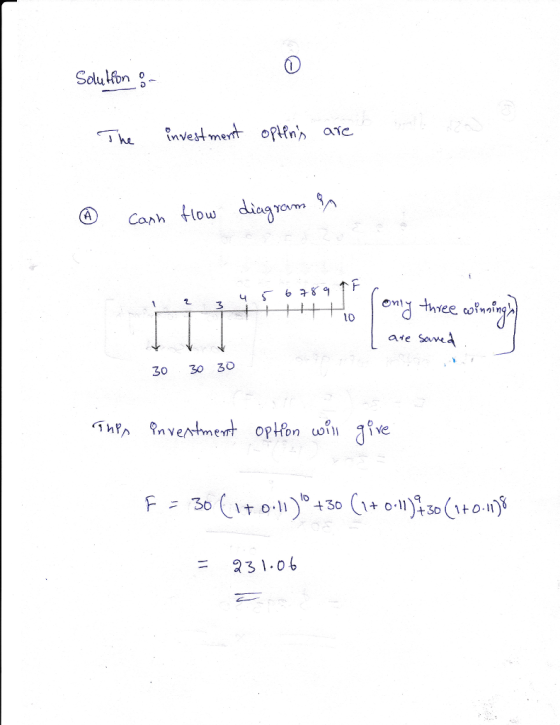 ①
Solution :-
The investment option's are
Ⓐ Cash flow diagram is
1 2 3 4 5 6 7 8 9 F
10
30 30 30
[only three winning's
are saved]
This investment option will give
F = 30 (1 + 0.11)^10 + 30 (1 + 0.11)^9 + 30 (1 + 0.11)^8
= 231.06